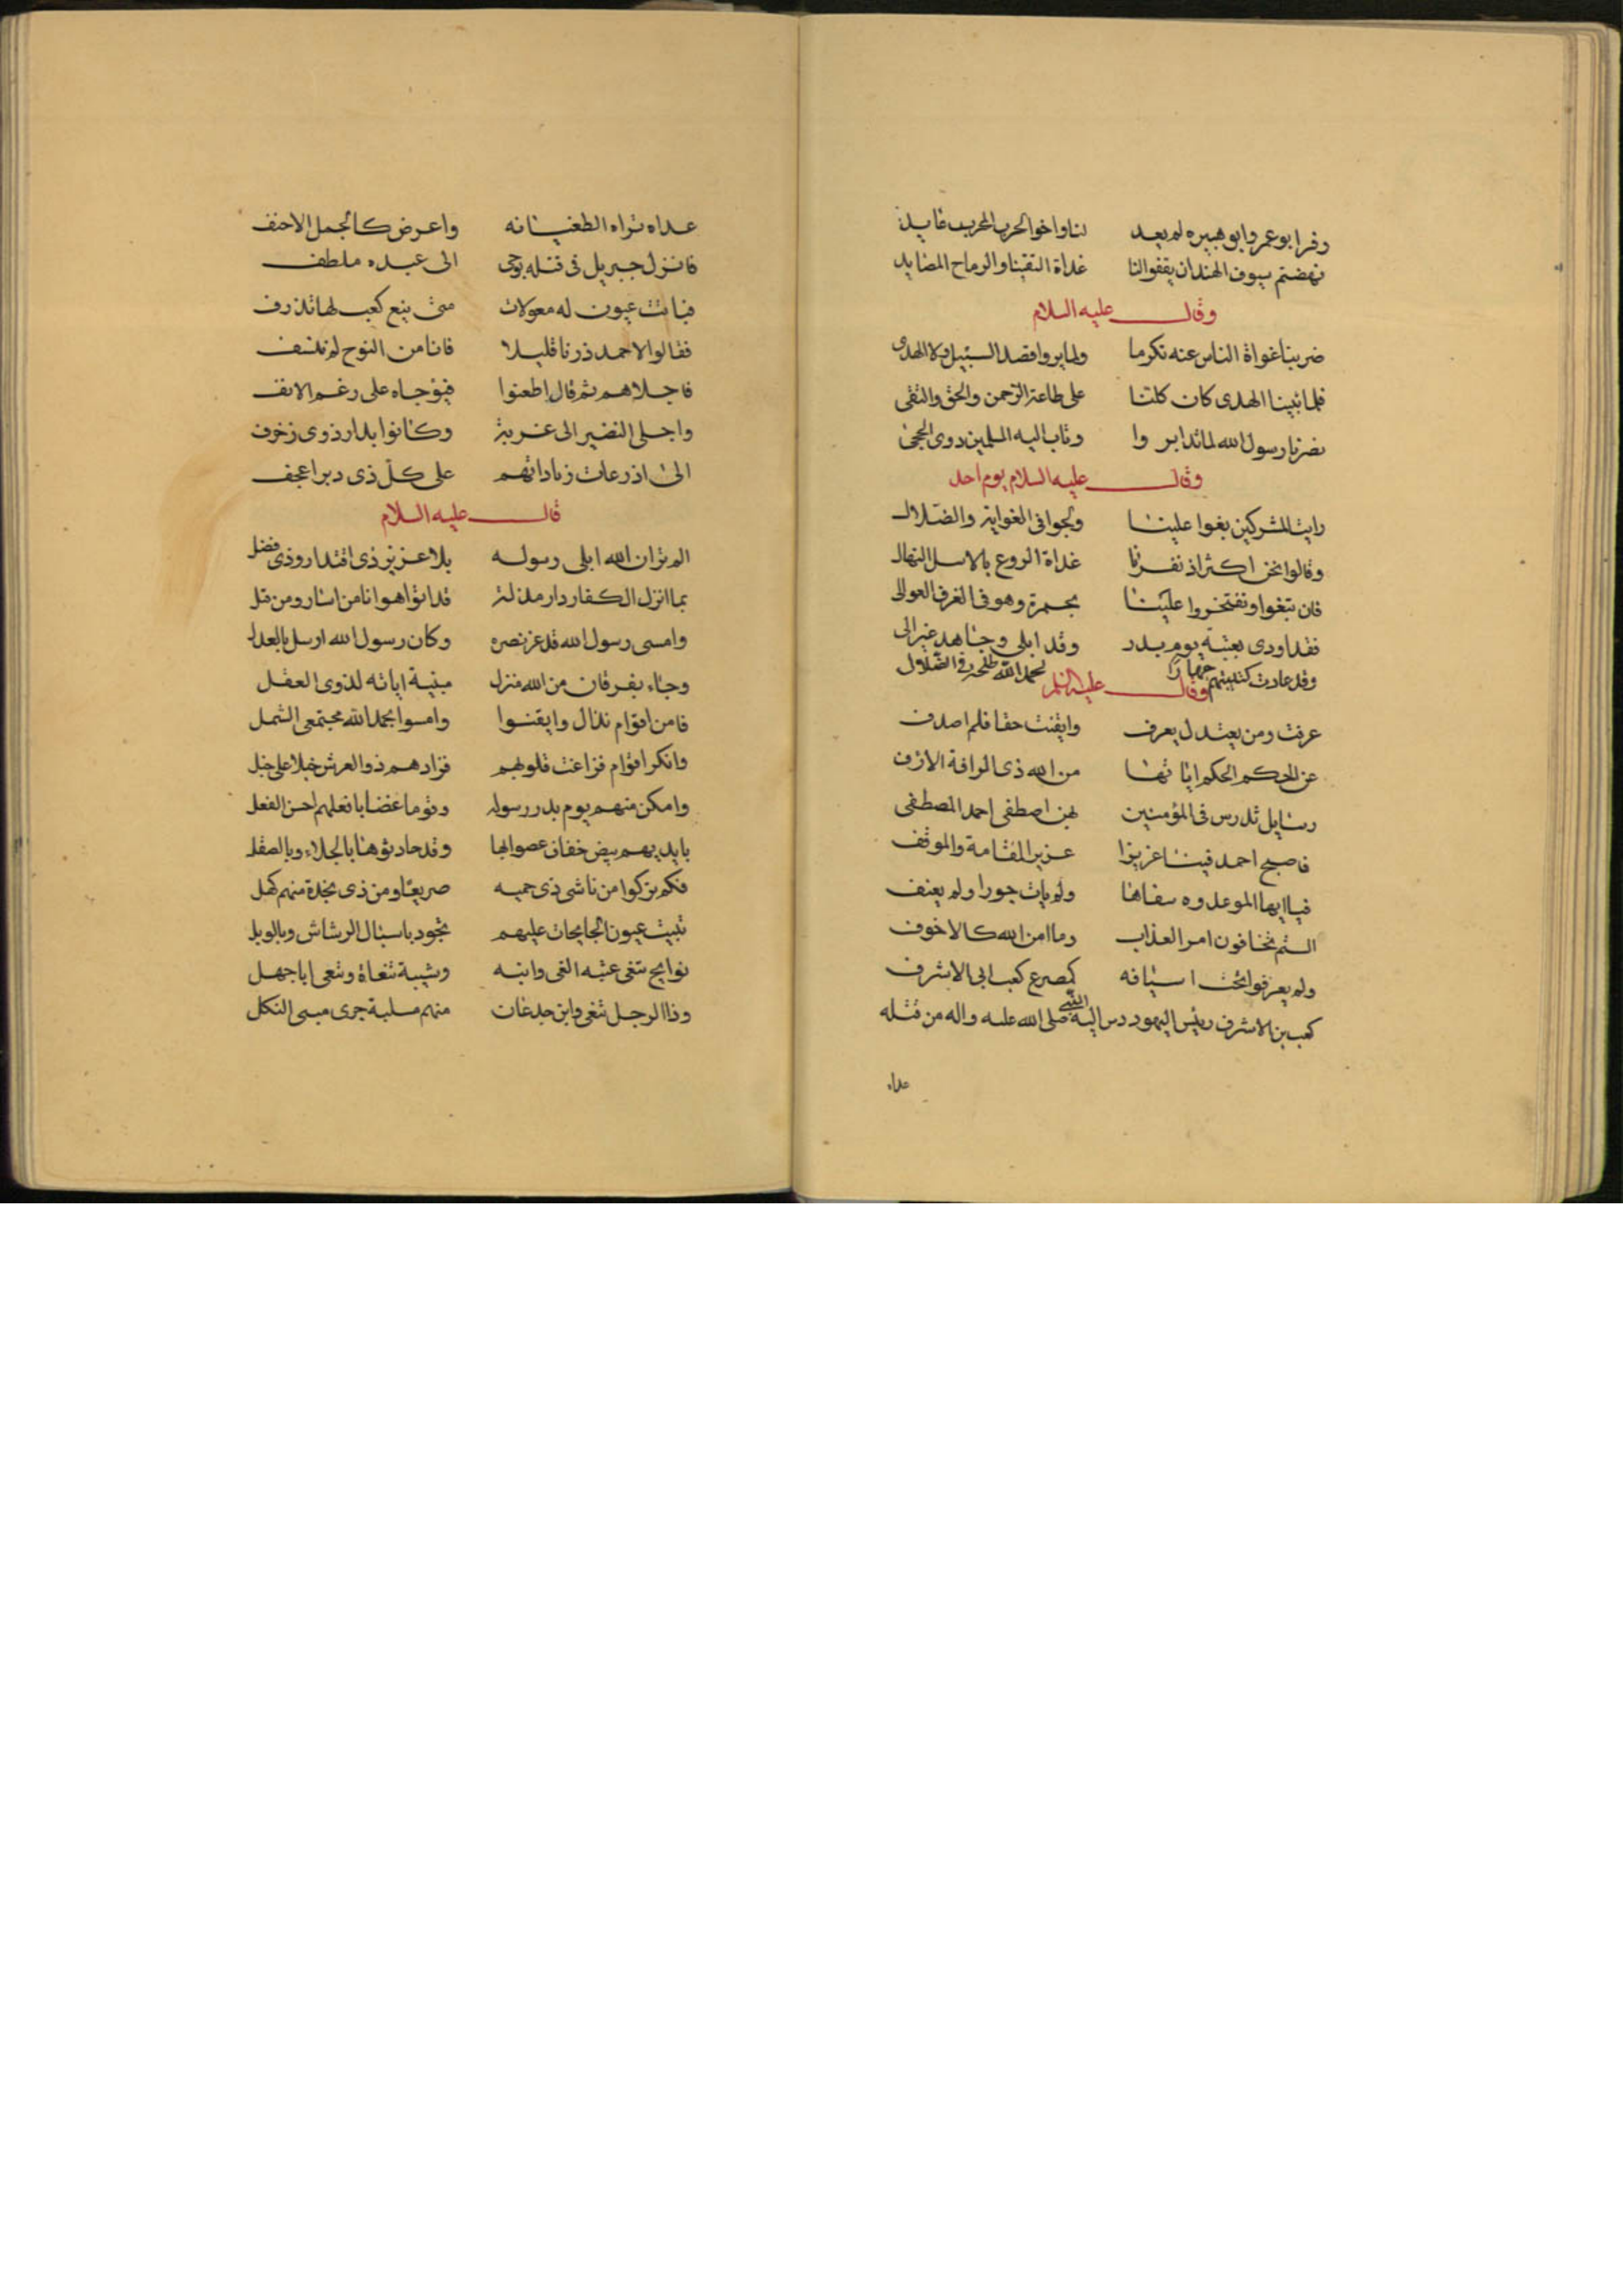 وفر ابو عمرو ابو هبيره لم يعد لنا واخو الحرب المجرب عايد
نهضتم سيوف الهند ان يقفوا لنا غداة التقينا والرماح المصايد
وقال عليه السلام
ضربنا غواة الناس عنه تكرما ولما يروا قصد السبيل ولا الهدى
فلما تبينا الهدى كان كلنا على طاعة الرحمن والحق والتقى
نصرنا رسول الله لما تدابروا وثاب اليه المسلمين ذوى الحجى
وقال عليه السلام يوم احد
رايت المشركين بغوا علينا ولجوا فى الغواية والضلال
وقالوا نحن اكثر اذ نفرنا غداة الروع بالاسل النهال
فان تبغوا وتفتخروا علينا بحمزة وهو فى الغرف العوالى
فقد اودى بعتبة يوم بدر وقد ابلى وجاهد غير الى
وقد عادت كتيبتهم جهارا بحمد الله طلحة فى الضلال
وقال عليه السلم
عرفت ومن يعتدل يعرف وايقنت حقا فلم اصدف
عن الحكم الحكم اياتها من الله ذى الرافة الارف
رسايل تدرس فى المؤمنين بهن اصطفى احمد المصطفى
فاصبح احمد فينا عزيزا عزيز المقامة والموقف
فيا ايها الموعدوه سفاها ولم يات جورا ولم يعنف
الستم تخافون امر العذاب وما امن الله كالاخوف
ولم يعرفوا تحت اسيافه كمصرع كعب ابى الاشرف
كعب بن الاشرف رئيس اليهود دس اليه النبى صلى الله عليه واله من قتله
غداه
غداه تراه الطغيانه واعرض كالجمل الاحنف
فانزل جبريل فى قتله بوحى الى عبده ملطف
فباتت عيون له معولات متى ينع كعب لها تذرف
فقالوا لاحمد ذرنا قليلا فانا من النوح لم نشف
فاجلاهم ثم قال اظعنوا فتوجاه على رغم الانف
واجلى النضير الى غربة وكانوا بدار ذوى زخرف
الى اذرعات زدادتهم على كل ذى دبر اعجف
قال عليه السلام
الم تر ان الله ابلى رسوله بلا عزيز ذى اقتدار وذى فضل
بما انزل الكفار دار مذلة قد لقوا هوانا من اسار ومن قتل
وامسى رسول الله قد عز نصره وكان رسول الله ارسل بالعدل
وجاء بفرقان من الله منزل مبنية اياته لذوى العقل
فامن اقوام بذال وايقنوا وامسوا بحمد الله مجتمعى الشمل
وانكر اقوام فزاغت قلوبهم فزادهم ذو العرش خبلا على خبل
وامكن منهم يوم بدر رسوله وقوما غضابا فعلهم احسن الفعل
بايديهم بيض خفاف عصوا بها وقد حادثوها بالجلاء وبالصقل
فكم تركوا من ناشى ذى حميه صريعا ومن ذى نجدة منهم كهل
تبيت عيون النايحات عليهم تجود باسبال الرشاش وبالوبل
نوايح تنعى عتبه الغى وابنه وشيبة تنعاه وتنعى ابا جهل
وذا الرجل تنعى وابن جدعان منهم مسلبة حرى مبينى الثكل